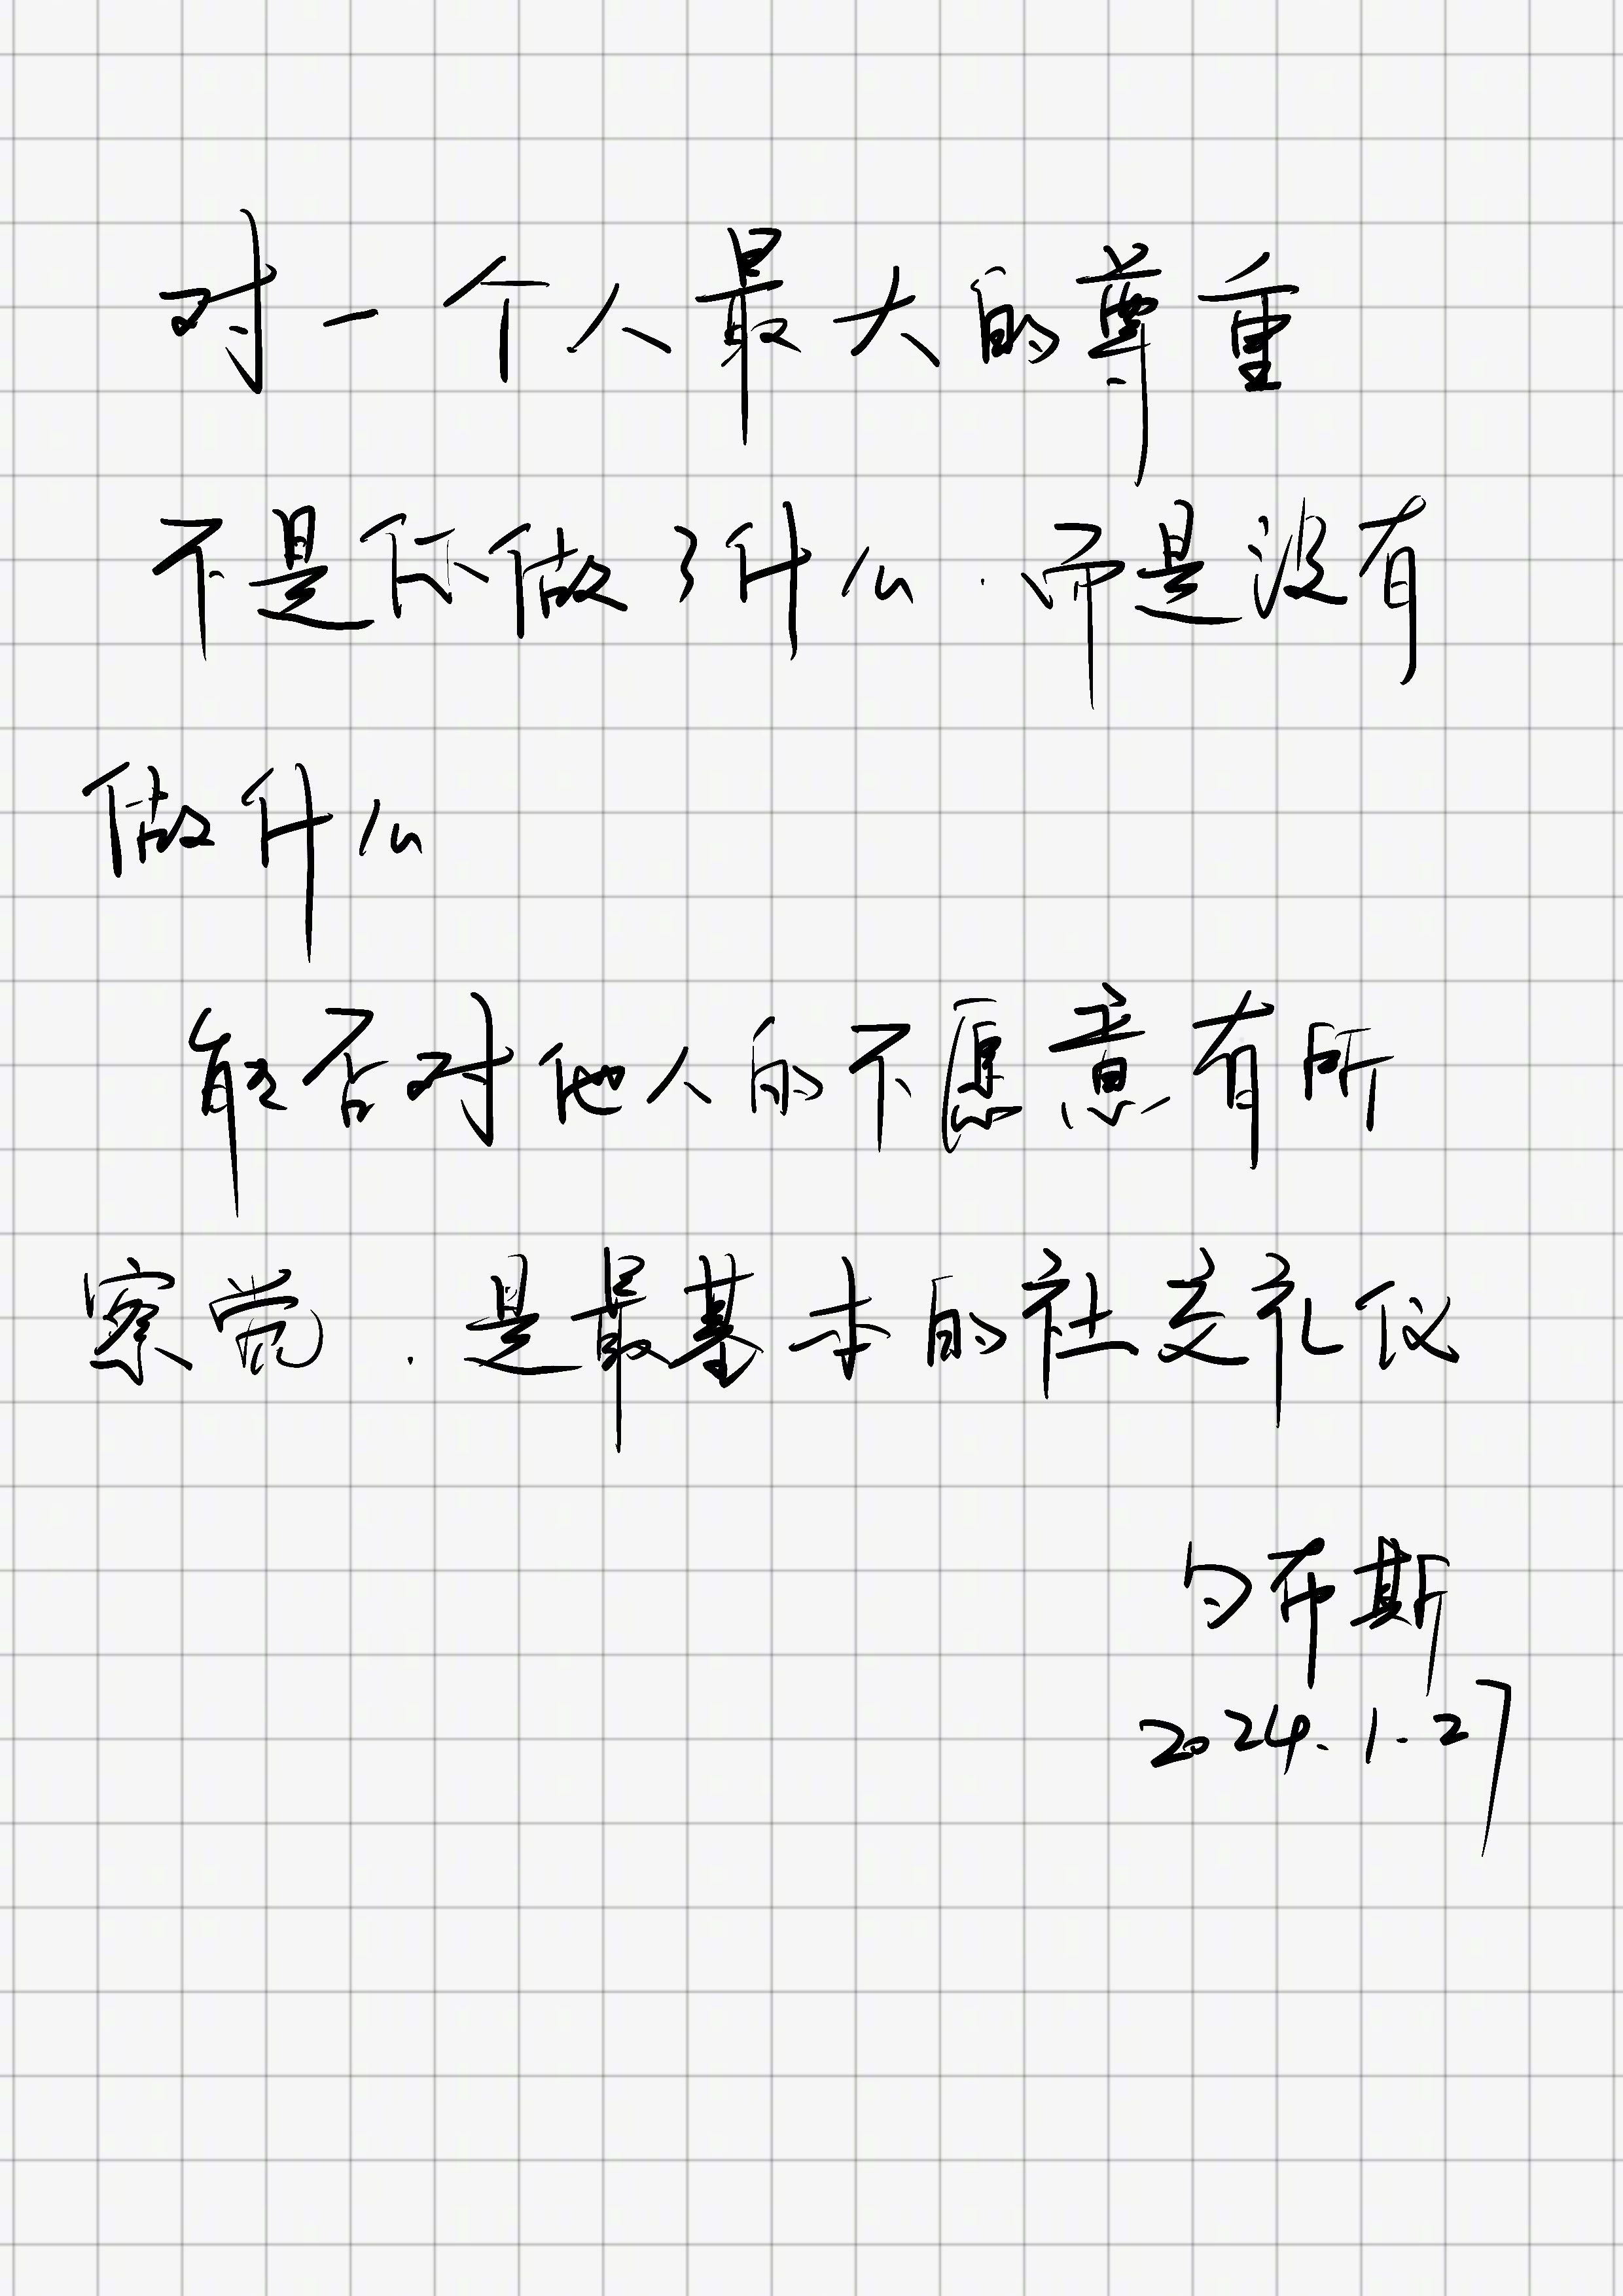 对一个人最大的尊重
不是你做了什么.而是没有
做什么
能否对他人的不愿意有所
察觉.是最基本的社交礼仪
勺布斯
2024.1.27